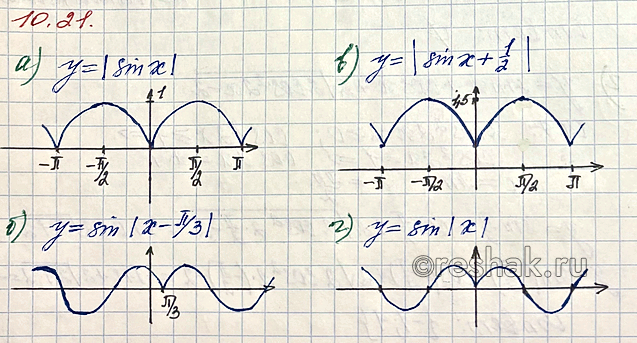 10.21.
а) y = |sin x|
1
-π -π/2 π/2 π
в) y = |sin x + 1/2|
1,5
-π -π/2 π/2 π
б) y = sin |x - π/3|
π/3
г) y = sin |x|
©reshak.ru